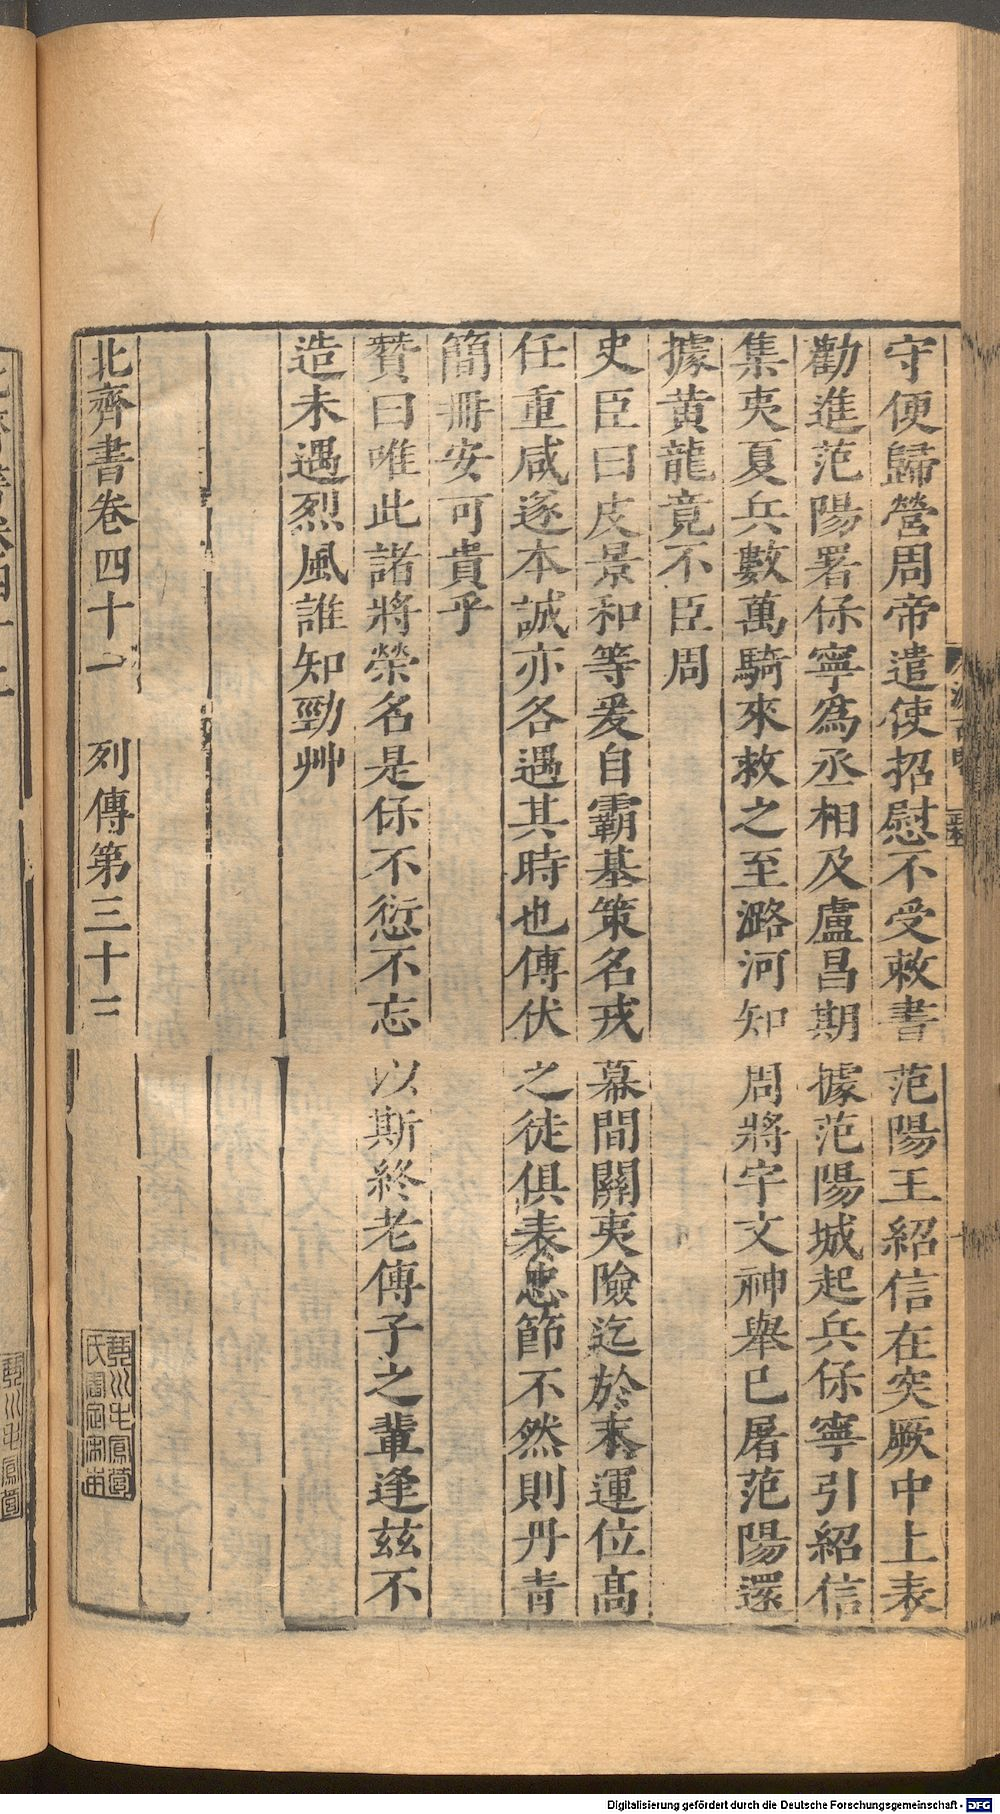 守便歸營周帝遣使招慰不受敕書范陽王紹信在突厥中上表
勸進范陽署保寧爲丞相及盧昌期據范陽城起兵保寧引紹信
集夷夏兵數萬騎來救之至潞河知周將宇文神舉已屠范陽還
據黄龍竟不臣周
史臣曰皮景和等爰自霸基策名戎幕間關夷險迄於末運位高
任重咸遂本誠亦各遇其時也傳伏之徒俱表忠節不然則丹青
簡冊安可貴乎
贊曰唯此諸將榮名是保不愆不忘以斯終老傳子之輩逢兹不
造未遇烈風誰知勁艸
北齊書卷四十一 列傳第三十三
琴川毛鳳苞氏審定宋本
Digitalisierung gefördert durch die Deutsche Forschungsgemeinschaft - DFG